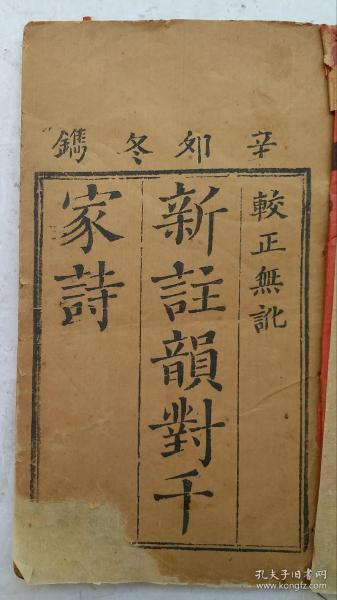 辛夘冬鐫
較正無訛
新註韻對千
家詩
孔夫子旧书网
www.kongfz.com